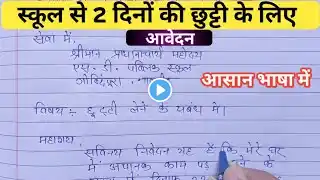 स्कूल से 2 दिनों की छुट्टी के लिए
आवेदन
सेवा में,
श्रीमान प्रधानाचार्य महोदय
एस. डी. पब्लिक स्कूल
आसान भाषा में
विषय:- छुट्टी लेने के संबंध में।
महाशय,
सविनय निवेदन यह है कि मेरे घर
में अचानक काम पड़